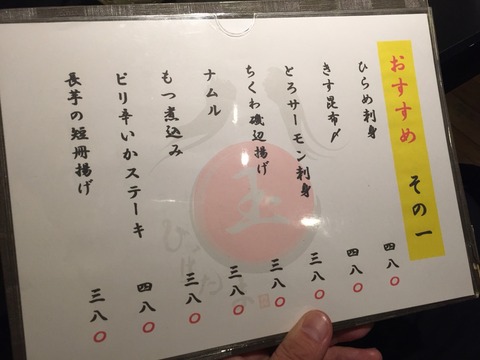 おすすめ その一
ひらめ刺身 四八〇
きす昆布〆 四八〇
とろサーモン刺身 三八〇
ちくわ磯辺揚げ 三八〇
ナムル 三八〇
もつ煮込み 三八〇
ピリ辛いかステーキ 四八〇
長芋の短冊揚げ 三八〇
玉